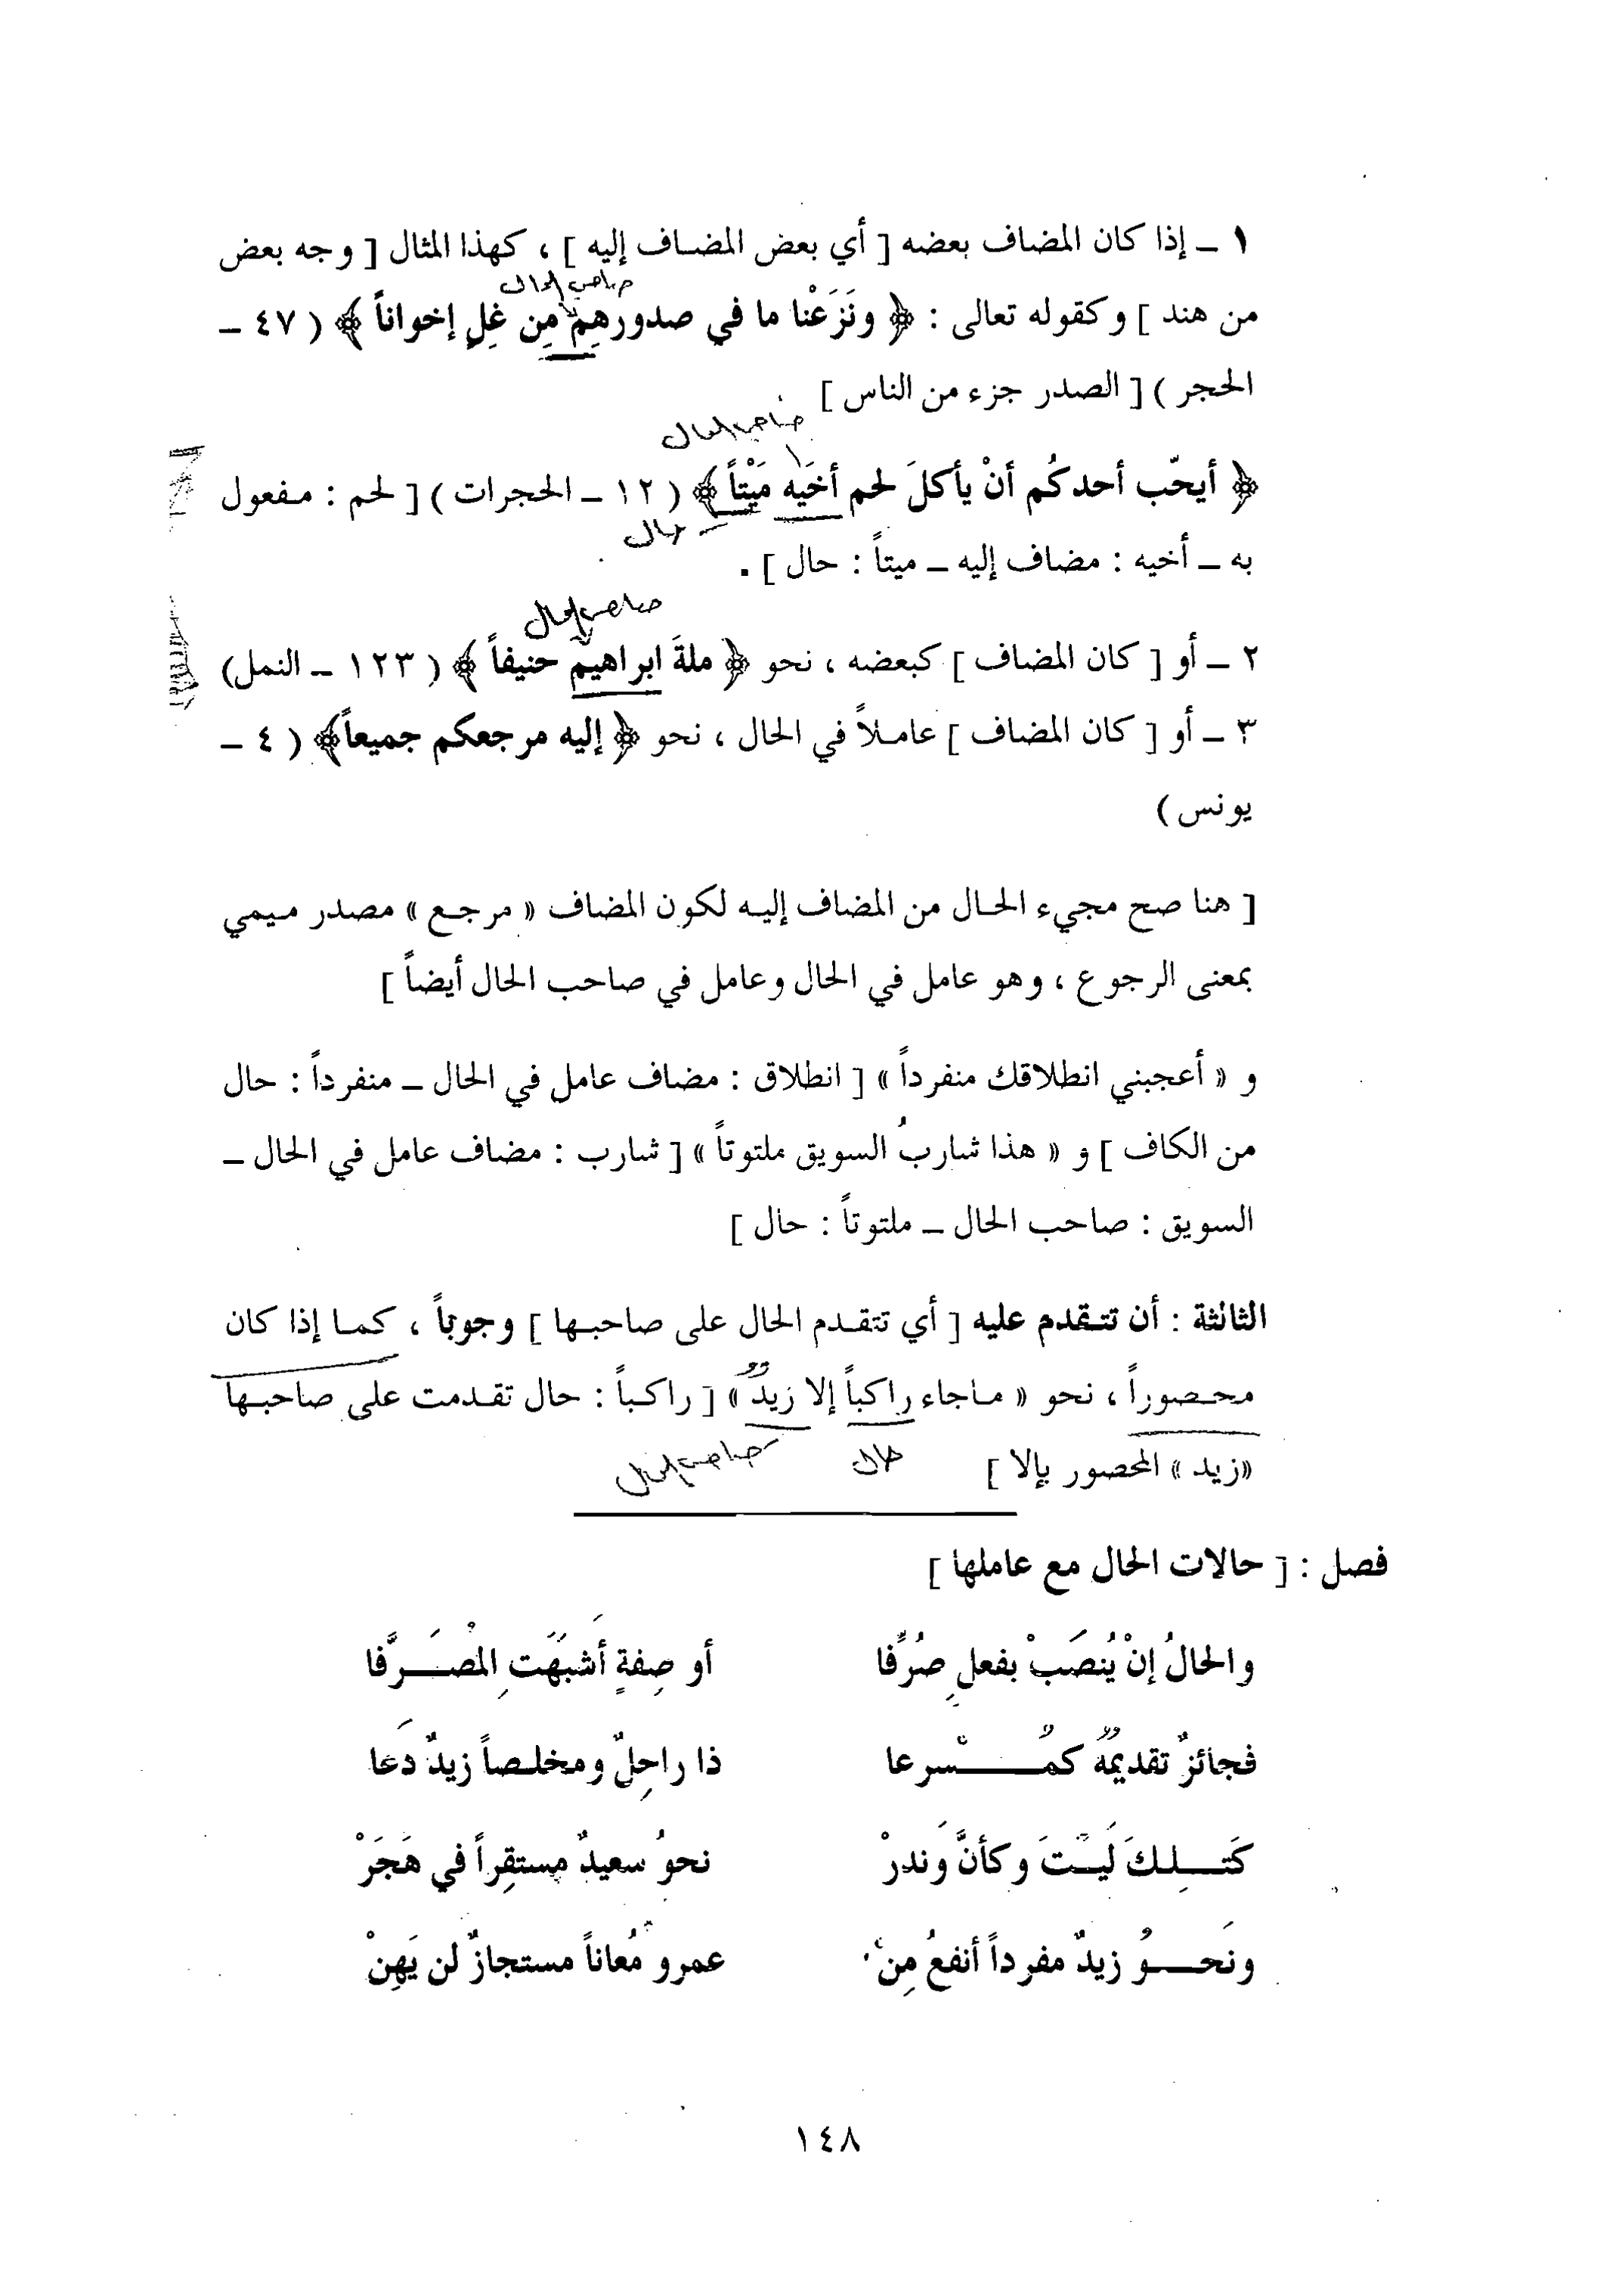 ١ ـ إذا كان المضاف بعضه [ أي بعض المضاف إليه ] ، كهذا المثال [ وجه بعض
صاحب الحال
من هند ] وكقوله تعالى : ﴿ ونَزَعْنا ما في صدورهِم مِن غِلٍ إخواناً ﴾ ( ٤٧ ـ
الحجر ) [ الصدر جزء من الناس ]
صاحب الحال
﴿ أيحّب أحدكُم أنْ يأكلَ لحم أخَيه مَيْتاً ﴾ ( ١٢ ـ الحجرات ) [ لحم : مفعول
حال
به ـ أخيه : مضاف إليه ـ ميتاً : حال ] .
صاحب الحال
٢ ـ أو [ كان المضاف ] كبعضه ، نحو ﴿ ملةَ ابراهيم حنيفاً ﴾ ( ١٢٣ ـ النمل)
٣ ـ أو [ كان المضاف ] عاملاً في الحال ، نحو ﴿ إليه مرجعكم جميعاً﴾ ( ٤ ـ
يونس )
[ هنا صح مجيء الحال من المضاف إليه لكون المضاف « مرجع » مصدر ميمي
بمعنى الرجوع ، وهو عامل في الحال وعامل في صاحب الحال أيضاً ]
و « أعجبني انطلاقك منفرداً » [ انطلاق : مضاف عامل في الحال ـ منفرداً : حال
من الكاف ] و « هذا شاربُ السويق ملتوتاً » [ شارب : مضاف عامل في الحال ـ
السويق : صاحب الحال ـ ملتوتاً : حال ]
الثالثة : أن تتقدم عليه [ أي تتقدم الحال على صاحبها ] وجوباً ، كما إذا كان
محصوراً ، نحو « ماجاء راكباً إلا زيدٌ » [ راكباً : حال تقدمت على صاحبها
«زيد » المحصور بإلا ]
حال صاحب الحال
فصل : [ حالات الحال مع عاملها ]
والحالُ إنْ يُنصَبْ بفعلٍ صُرِّفا أو صِفةٍ أشبَهَتِ المُصَرَّفا
فجائزٌ تقديمُهُ كمُسْرعا ذا راحِلٌ ومخلصاً زيدٌ دَعَا
كَتِلكَ لَيتَ وكأنَّ وَندرْ نحوُ سعيدٌ مستقِراً في هَجَرْ
ونَحوُ زيدٌ مفرداً أنفعُ مِن عمروٍ مُعاناً مستجازٌ لن يَهِنْ
١٤٨